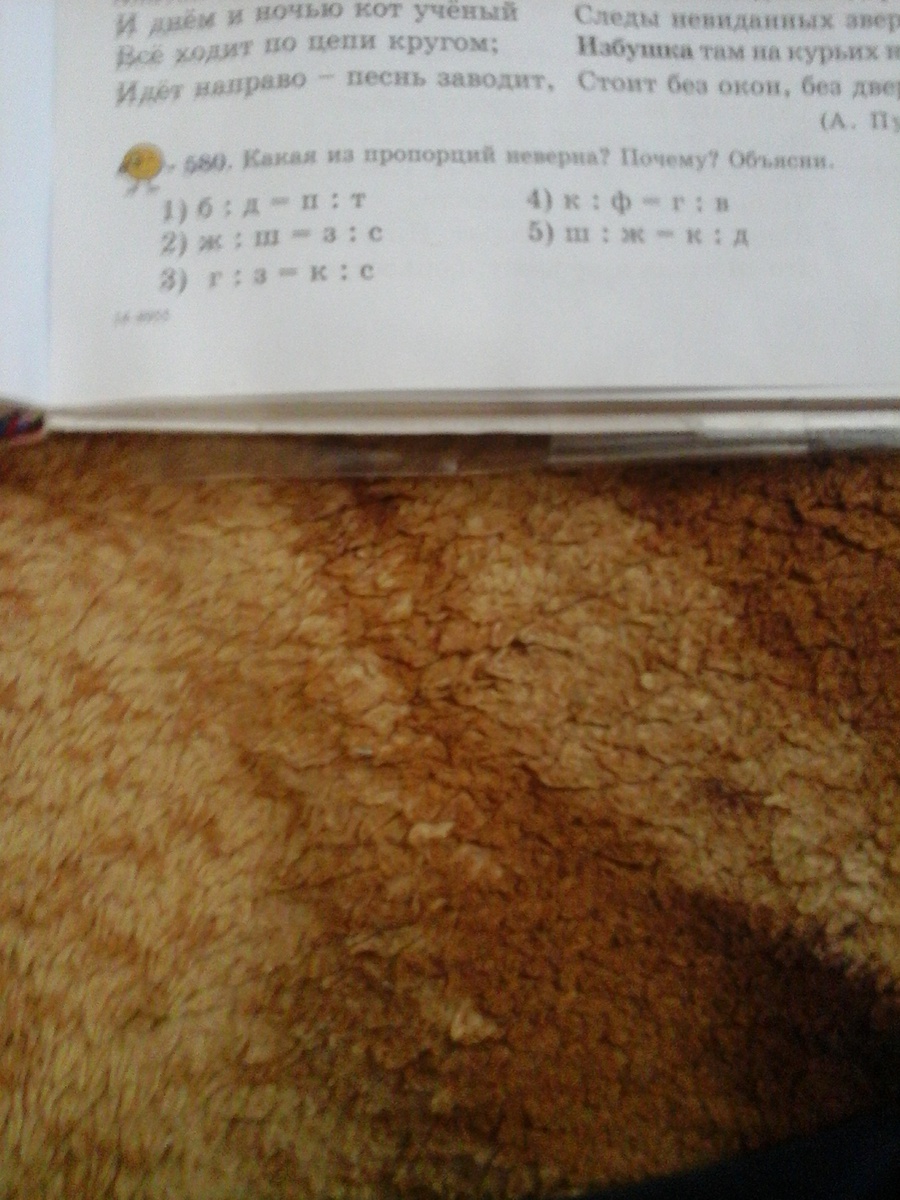 И днём и ночью кот учёный
Всё ходит по цепи кругом;
Идёт направо – песнь заводит,
Следы невиданных звер
Избушка там на курьих н
Стоит без окон, без двер
(А. Пу
580. Какая из пропорций неверна? Почему? Объясни.
1) б : д = п : т
2) ж : ш = з : с
3) г : з = к : с
4) к : ф = г : в
5) ш : ж = к : д